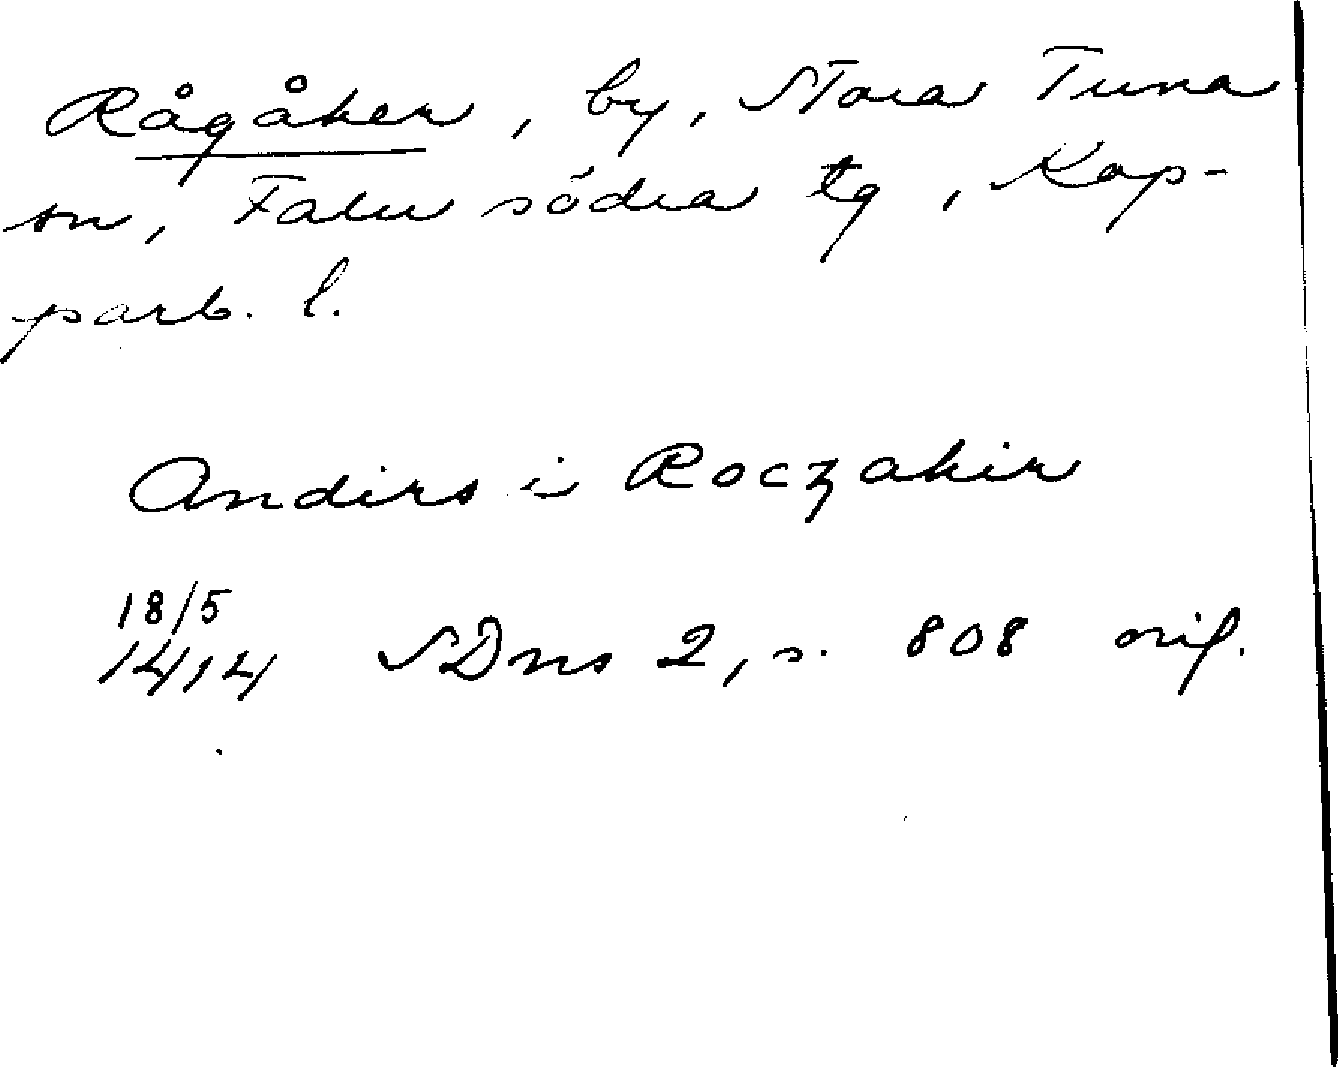 Rågåker, by, Stora Tuna
sn, Falu södra tg, Kop-
parb. l.
Andirs i Roczakir
18/5
1414 SDns 2, s. 808 orig.